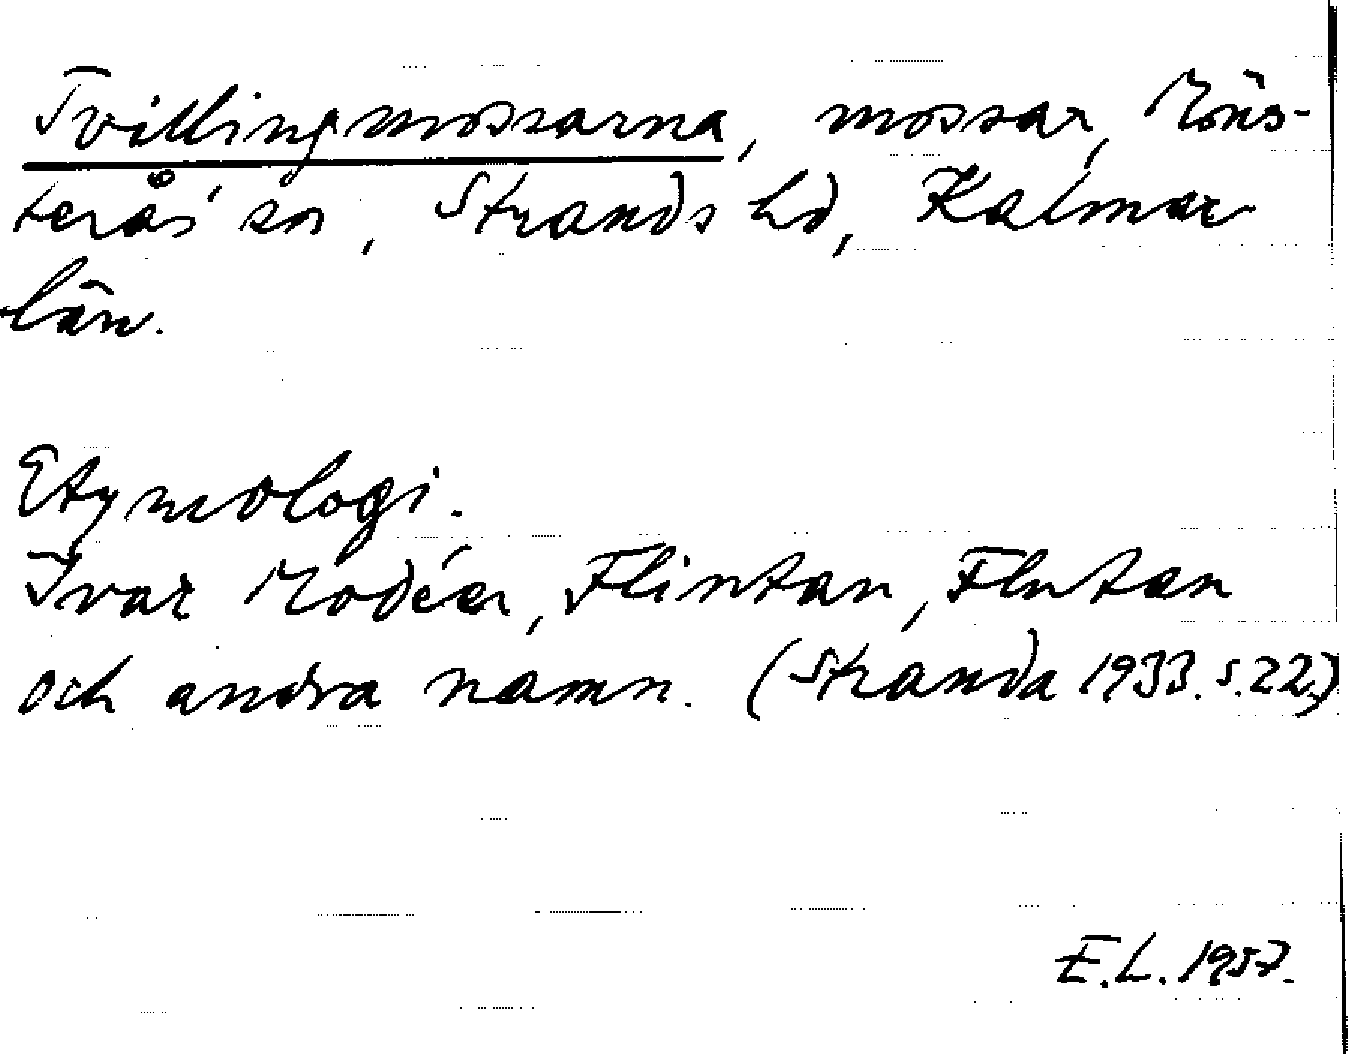 Tvillingmossarna, mossar, Möns-
terås' sn, Strands hd, Kalmar
län.
Etymologi.
Ivar Modéer, Flintan, Flutan
och andra namn. (Stranda 1933. s.22.)
E.L. 1957.